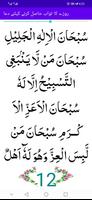 روزے کا ثواب حاصل کرنے کیلئے دعا
سُبْحَانَ الْاِلٰهِ الْجَلِيْلِ
سُبْحَانَ مَنْ لَّا يَنْبَغِى
التَّسْبِيْحُ اِلَّا لَهٗ
سُبْحَانَ الْاَعَزِّ الْاَ
كْرَمِ سُبْحَانَ مَنْ
لَّبِسَ الْعِزَّ وَهُوَ لَهٗ اَهْلٌ
12